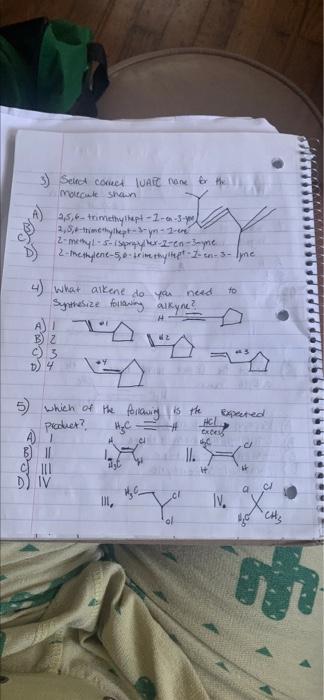 3) Select correct IUPAC name for the
molecule shown
A) 2,5,6-trimethylhept-1-en-3-yne
B) 2,5,6-trimethylhept-3-yn-1-ene
C) 2-methyl-5-isopropylhex-1-en-3-yne
D) 2-methylene-5,6-trimethylhept-1-en-3-yne
4) What alkene do you need to
Synthesize following alkyne?
H
A) 1 #1
B) 2 #2
C) 3 #3
D) 4 #4
5) which of the following is the expected
product? H3C H HCl
excess
A) I
B) II
C) III
D) IV
I. H Cl
H3C H
II. H3C Cl
H H
III. H3C Cl
Cl
IV. Cl Cl
H3C CH3